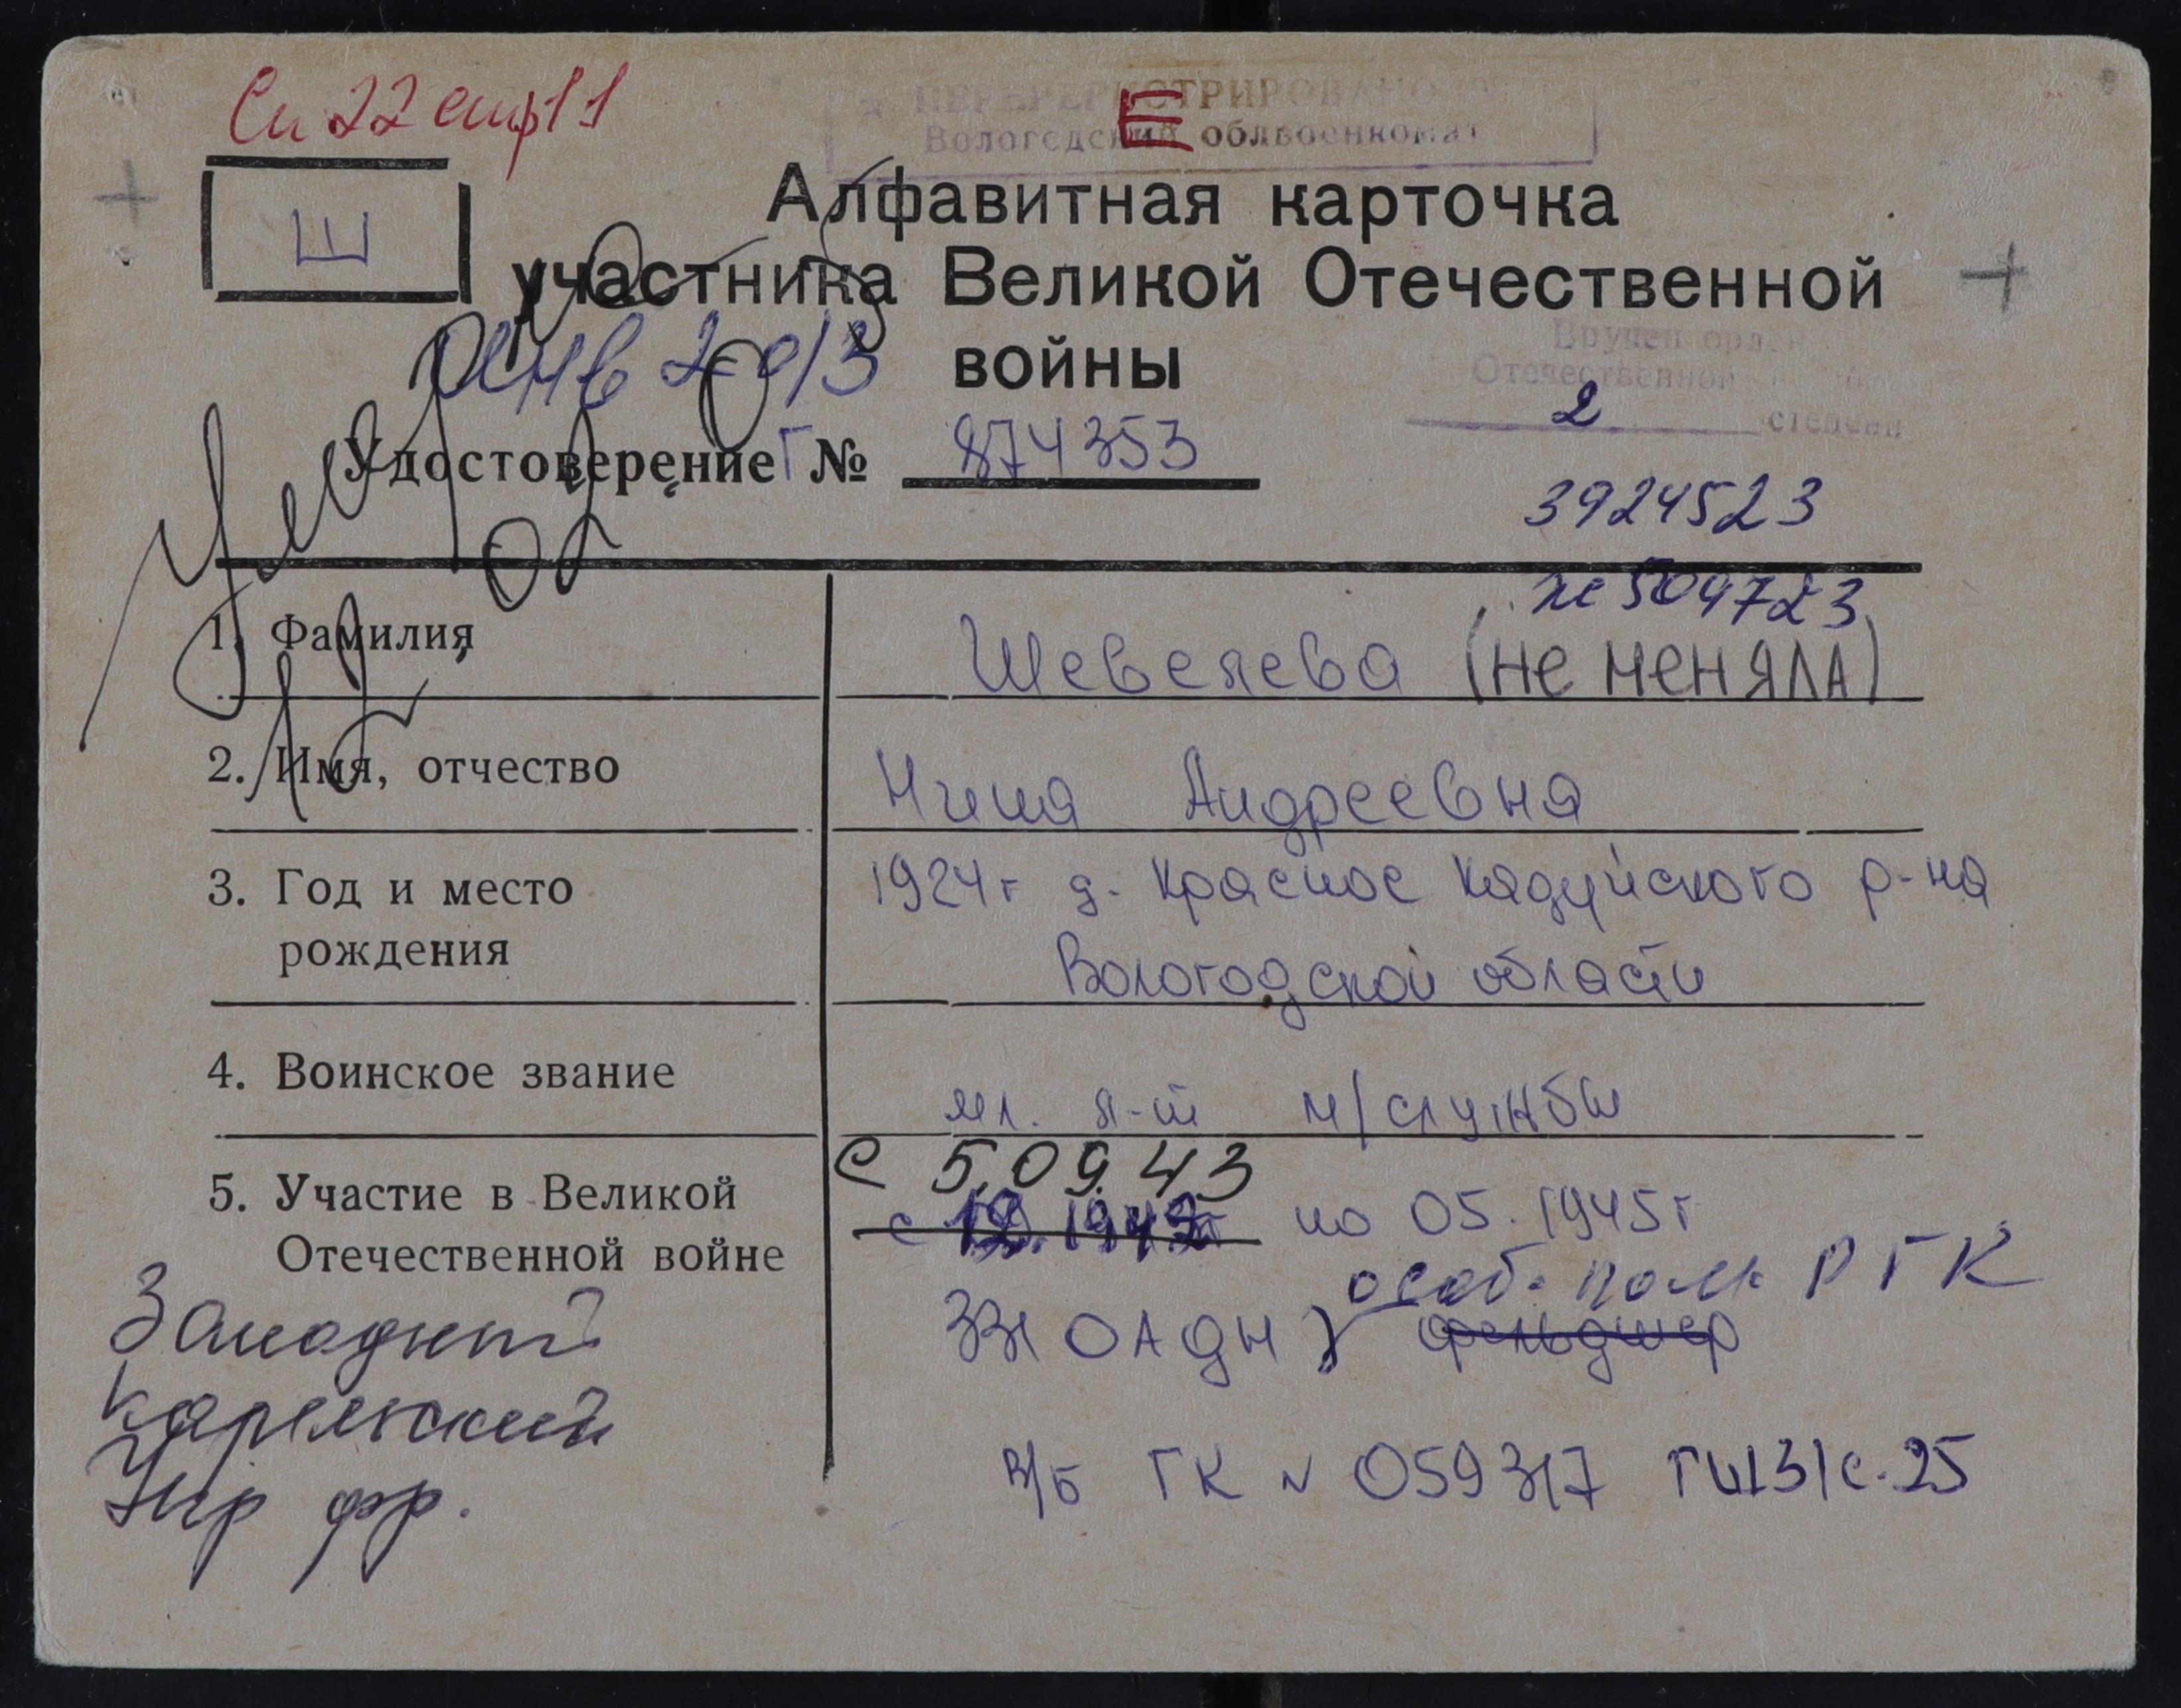 Сп 22 стр 11
ПЕРЕРЕГИСТРИРОВАНО
Вологодский облвоенкомат
Е
Ш
Алфавитная карточка
участника Великой Отечественной
войны
Вручен орден
Отечественной войны
2 степени
Удостоверение Г № 874353
3924523
№ 504723
1. Фамилия
Шевелева (не меняла)
2. Имя, отчество
Нина Андреевна
3. Год и место рождения
1924 г д. Красное Кадуйского р-на
Вологодской области
4. Воинское звание
мл. л-т м/службы
5. Участие в Великой Отечественной войне
с 5.09.43
по 05.1945 г
особ. полк РГК
ОАДН фельдшер
Западный
Карельский
Укр фр.
в/б ГК N